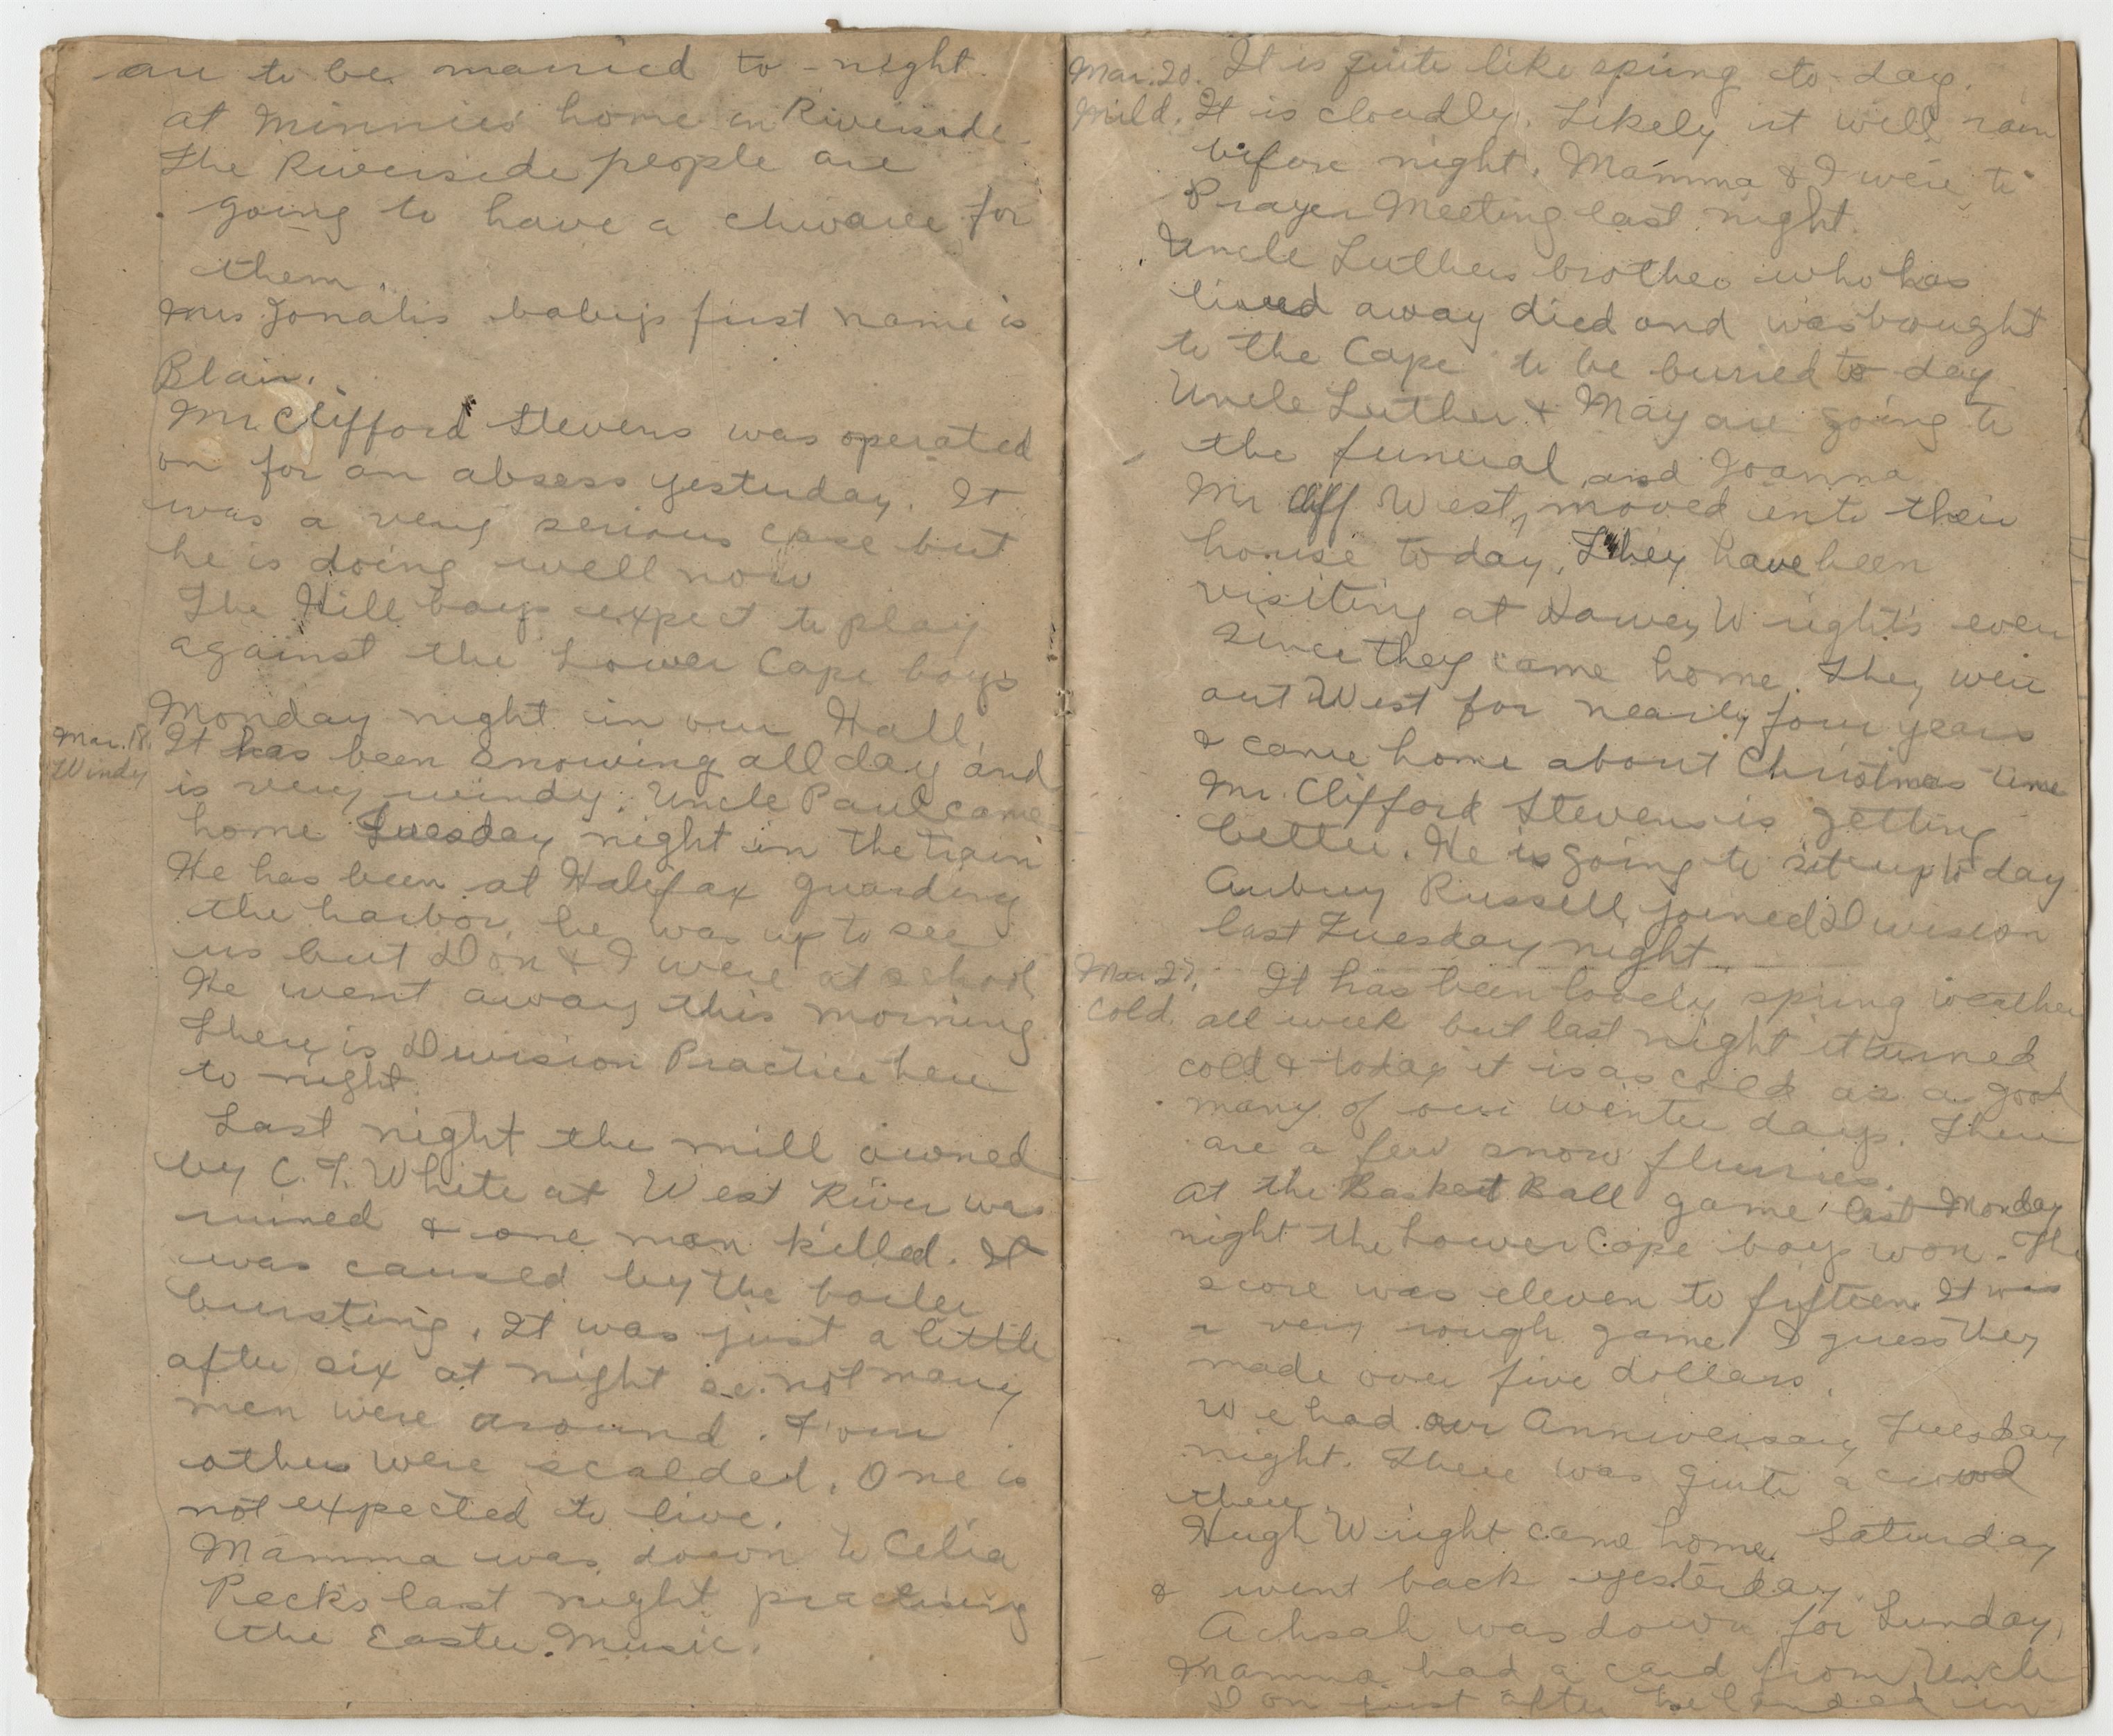 are to be married to-night
at Minnies' home in Riverside.
The Riverside people are
going to have a chivaree for
them.
Mrs Jonahs babys first name is
Blair.
Mr. Clifford Stevens was operated
on for an absess yesterday. It
was a very serious case but
he is doing well now
The Hill boys expect to play
against the Lower Cape boys
Monday night in our Hall.
Mar. 18. It has been snowing all day and
Windy is very windy. Uncle Paul came
home Tuesday night in the train
He has been at Halifax guarding
the harbor. he was up to see
us but Don & I were at school
He went away this morning
There is Division Practice here
to-night.
Last night the mill owned
by C. T. White at West River was
ruined & one man killed. It
was caused by the boiler
bursting. It was just a little
after six at night so not many
men were around. Four
others were scalded. One is
not expected to live.
Mamma was down to Celia
Pecks last night practising
the Easter Music.
Mar. 20. It is quite like spring to-day.
Mild. It is cloudly. Likely it will rain
before night. Mamma & I were to
Prayer Meeting last night.
Uncle Luthers brother who has
lived away died and was bought
to the Cape to be buried to-day
Uncle Luther & May are going to
the funeral and Joanna
Mr Cliff West, moved into their
house today. They have been
visiting at Dawey Wright's ever
since they came home. They were
out West for nearly four years
& came home about Christmas time
Mr. Clifford Stevens is getting
better. He is going to sit up to day
Aubrey Russell joined Division
last Tuesday night.
Mar. 27. It has been lovely spring weather
Cold. all week but last night it turned
cold & today it is as cold as a good
many of our winter days. There
are a few snow flurries.
At the Basket Ball game last Monday
night the Lower Cape boys won. The
score was eleven to fifteen. It was
a very rough game I guess they
made over five dollars.
We had our Anniversary Tuesday
night. There was quite a crowd
there.
Hugh Wright came home Saturday
& went back yesterday
Achsah was down for Sunday.
Mamma had a card from Uncle
Don just after he landed in